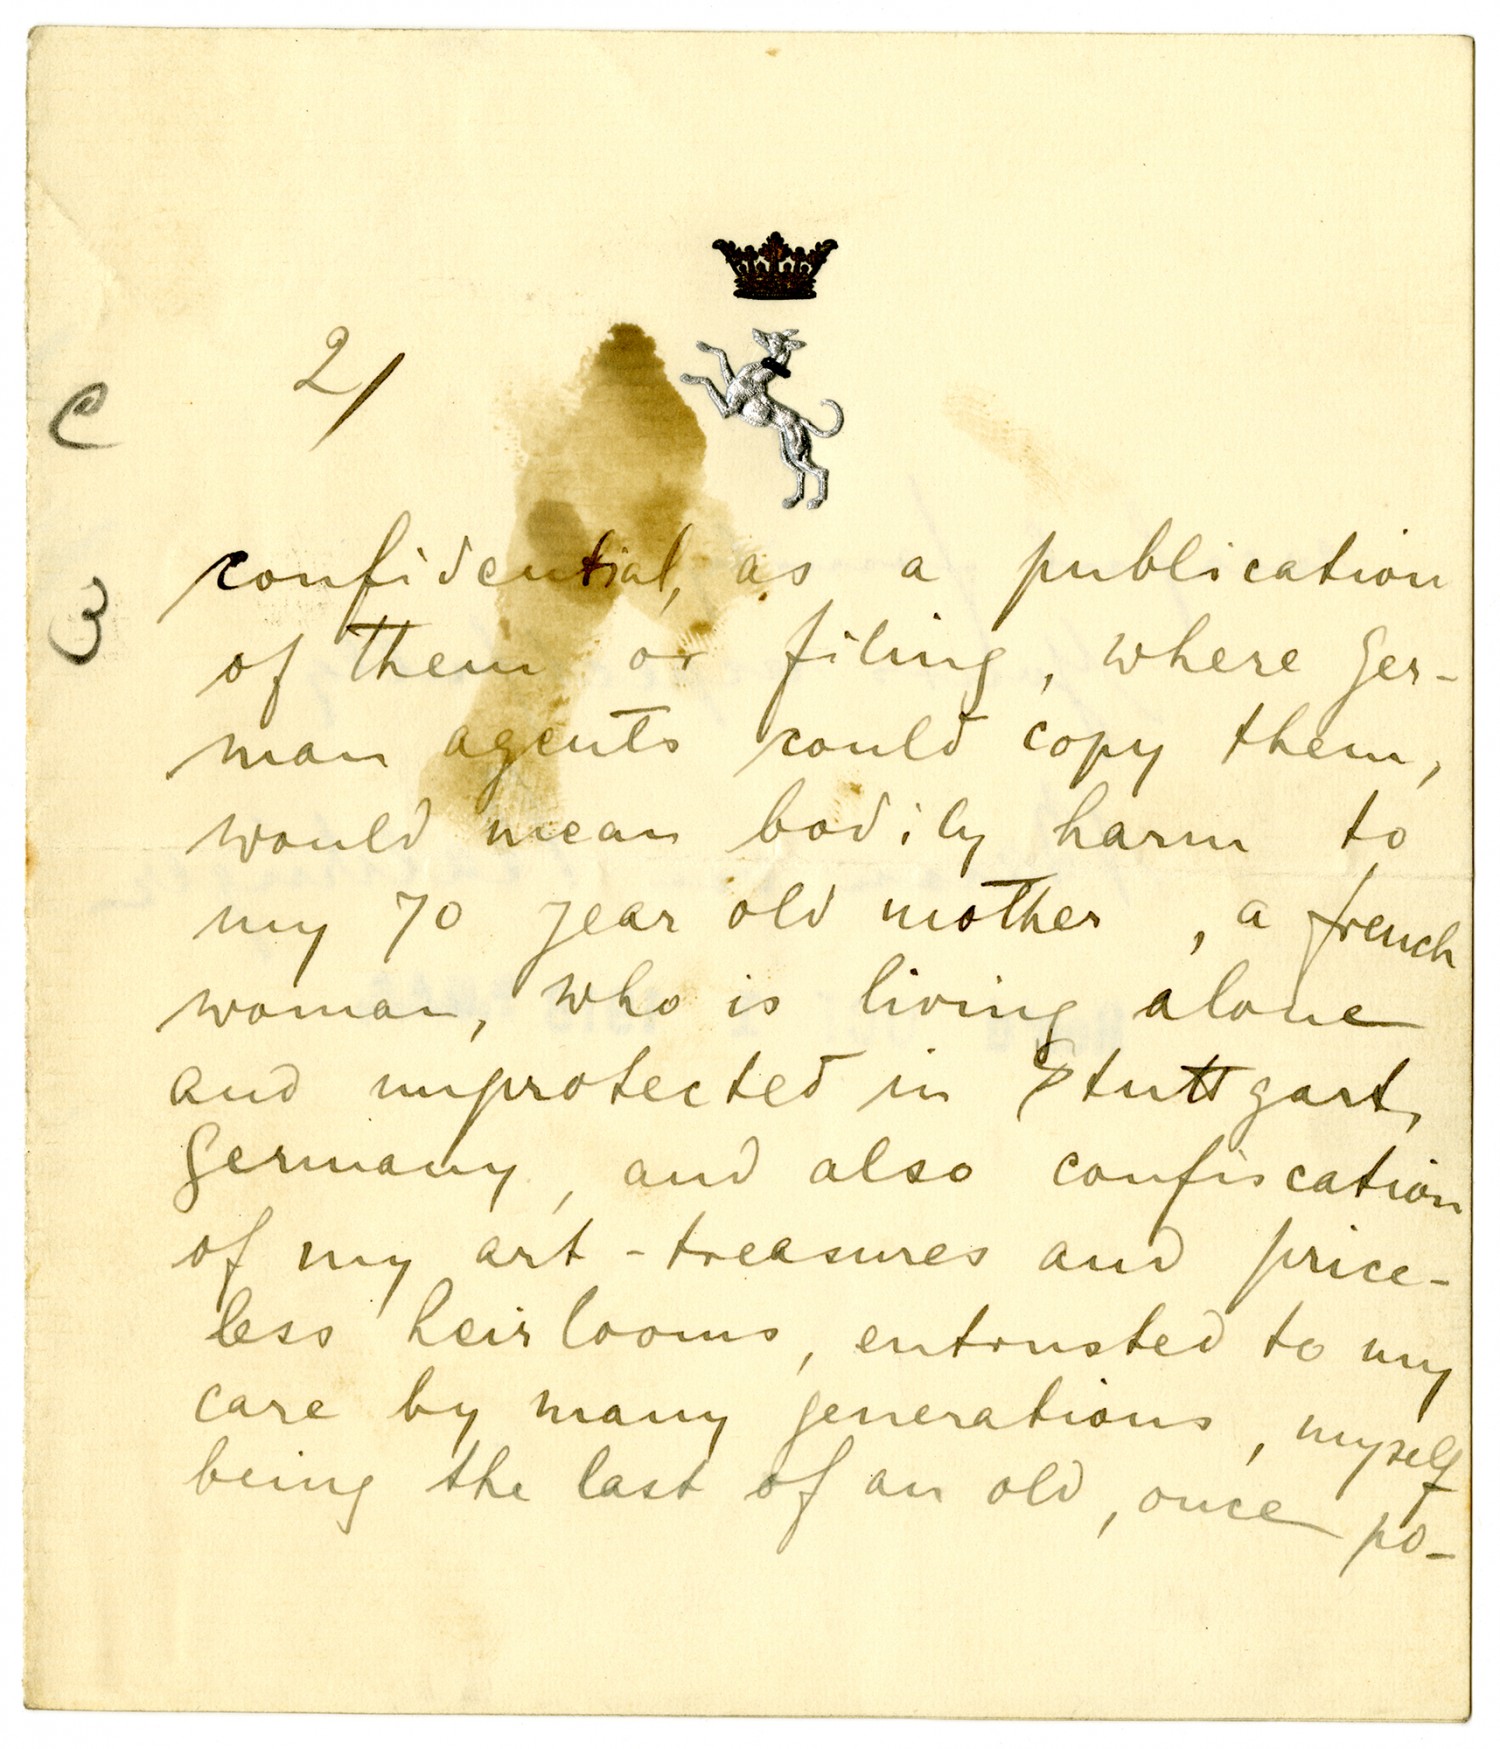 2/
C
3
confidential, as a publication
of them or filing, where Ger-
man agents could copy them,
would mean bodily harm to
my 70 year old mother, a french
woman, who is living alone
and unprotected in Stuttgart,
Germany, and also confiscation
of my art-treasures and price-
less heirlooms, entrusted to my
care by many generations, myself
being the last of an old, once po-